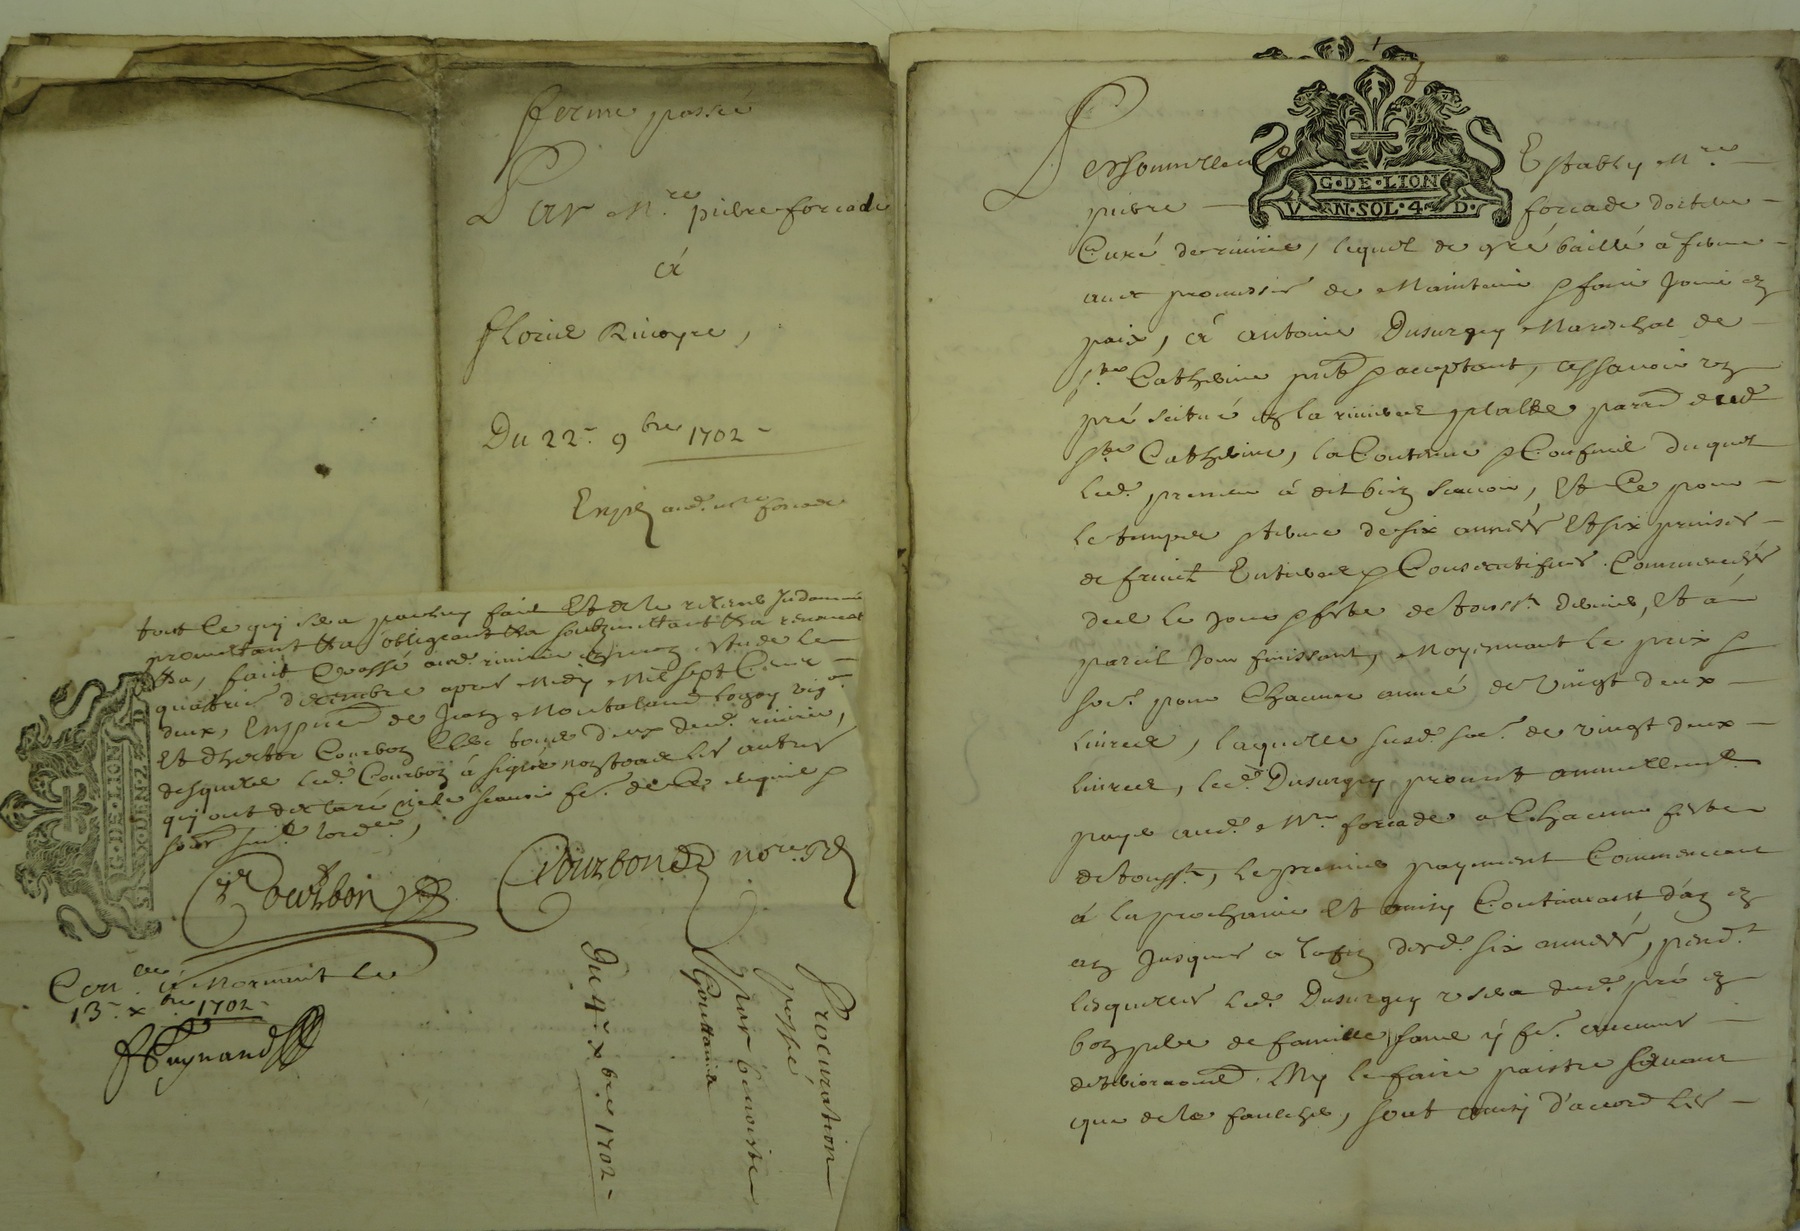 ferme passée
Par Mre pierre forcade
à
florie Rivoyre,
Du 22e 9bre 1702
Exped aud. mre forcade
tout ce quy sera par luy fait Et de le relever Indamne
promettant &a obligeant &a soubzmettant &a renoncant
&a, fait & passé aud. riverie estude le
quatrie decembre apres Midy Mil sept Cent
deux, En pnce de Jean Montaland
Et d'hector Courbon Clerc tous deux dud. riverie,
desquels led. Courbon à signé non les autres
quy ont declaré ne le scavoir fe. de ce enquis &
Courbon
Courbon nore Rl
G·DE·LION
Conlle à Mornant le
13e xbre 1702
Du 4e xbre 1702
Procuration
passé
par benoiste
Gouttaude
G·DE·LION
V N·SOL·4·D·
Personnellemt Estably Mre
pierre forcade docteur
Curé de riverie, lequel de gré baille à ferme
avec promesse de Maintenir & faire Jouir en
paix, à antoine Dusurgey Mareschal de
ste Catherine pnt & acceptant, assavoir un
pré scitué en la riviere parre dud
ste Catherine, la Contenue & Confins duquel
led. preneur à dit bien scavoir, Et Ce pour
le temps & terme de six années Et six prinses
de fruit Entieres & Consecutifves Commencées
des le Jour & feste de touss. derniere, Et à
pareil Jour finissant, Moyennant le prix &
soe. pour Chacune année de vingt deux
livres, laquelle susd. soe. de vingt deux
livres, led. Dusurgey promet annuellemt
payer aud. Mre forcade a Chacune feste
de touss., le premier payement Commencant
à la prochaine Et ainsy Continuant d'an en
an Jusques a la fin desd. six années, pendt
lesquelles led. Dusurgey usera dud. pré en
bon pere de famille sans y fe. aucunes
deteriorations Ny le faire paistre
que de le faulcher, sont ainsy d'accord les